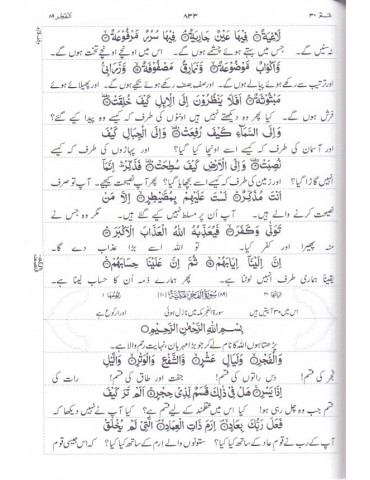 عـمّ ٣٠ ٨٣٣ الفجر ٨٩
لَاغِيَةً فِيهَا عَيْنٌ جَارِيَةٌ فِيهَا سُرُرٌ مَرْفُوعَةٌ
نہ سنیں گے۔ جس میں بہتے ہوئے چشمے ہوں گے۔ اس میں اونچے اونچے تخت ہوں گے۔
وَأَكْوَابٌ مَوْضُوعَةٌ وَنَمَارِقُ مَصْفُوفَةٌ وَزَرَابِيُّ
اور ترتیب سے رکھے ہوئے پیالے ہوں گے۔ اور صف بصف رکھے ہوئے تکیے ہوں گے۔ اور پھیلائے ہوئے
مَبْثُوثَةٌ أَفَلَا يَنْظُرُونَ إِلَى الْإِبِلِ كَيْفَ خُلِقَتْ
فرش ہوں گے۔ کیا پھر وہ دیکھتے نہیں ہیں اونٹوں کی طرف کہ کیسے وہ پیدا کیے گئے؟
وَإِلَى السَّمَاءِ كَيْفَ رُفِعَتْ وَإِلَى الْجِبَالِ كَيْفَ
اور آسمان کی طرف کہ کیسے اونچا کیا گیا؟ اور پہاڑوں کی طرف کہ کیسے
نُصِبَتْ وَإِلَى الْأَرْضِ كَيْفَ سُطِحَتْ فَذَكِّرْ إِنَّمَا
انہیں گاڑا گیا؟ اور زمین کی طرف کہ کیسے اسے بچھایا گیا؟ پھر آپ نصیحت کیجیے۔ آپ تو صرف
أَنْتَ مُذَكِّرٌ لَسْتَ عَلَيْهِمْ بِمُصَيْطِرٍ إِلَّا مَنْ
نصیحت کرنے والے ہیں۔ آپ اُن پر مسلط نہیں کیے گئے ہیں۔ مگر وہ جس نے
تَوَلَّى وَكَفَرَ فَيُعَذِّبُهُ اللَّهُ الْعَذَابَ الْأَكْبَرَ
منہ پھیرا اور کفر کیا۔ تو اللہ اسے بڑا عذاب دے گا۔
إِنَّ إِلَيْنَا إِيَابَهُمْ ثُمَّ إِنَّ عَلَيْنَا حِسَابَهُمْ
یقیناً ہماری طرف اُن کا لوٹنا ہے۔ پھر ہمارے ذمہ اُن کا حساب لینا ہے۔
(٨٩) سُورَةُ الْفَجْرِ مَكِّيَّةٌ (١٠)
اس میں ۳۰ آیتیں ہیں سورۃ الفجر مکہ میں نازل ہوئی اور ا رکوع ہے
بِسْمِ اللَّهِ الرَّحْمَنِ الرَّحِيمِ
پڑھتا ہوں اللہ کا نام لے کر جو بڑا مہربان، نہایت رحم والا ہے۔
وَالْفَجْرِ وَلَيَالٍ عَشْرٍ وَالشَّفْعِ وَالْوَتْرِ وَاللَّيْلِ
فجر کی قسم! دس راتوں کی قسم! جفت اور طاق کی قسم! رات کی
إِذَا يَسْرِ هَلْ فِي ذَلِكَ قَسَمٌ لِذِي حِجْرٍ أَلَمْ تَرَ كَيْفَ
قسم جب وہ چل رہی ہو! کیا اس میں عقلمند کے لیے قسم ہے؟ کیا آپ نے نہیں دیکھا کہ
فَعَلَ رَبُّكَ بِعَادٍ إِرَمَ ذَاتِ الْعِمَادِ الَّتِي لَمْ يُخْلَقْ
آپ کے رب نے قوم عاد کے ساتھ کیا کیا؟ ستونوں والے اِرم کے ساتھ کیا کیا؟ کہ اس جیسی قوم